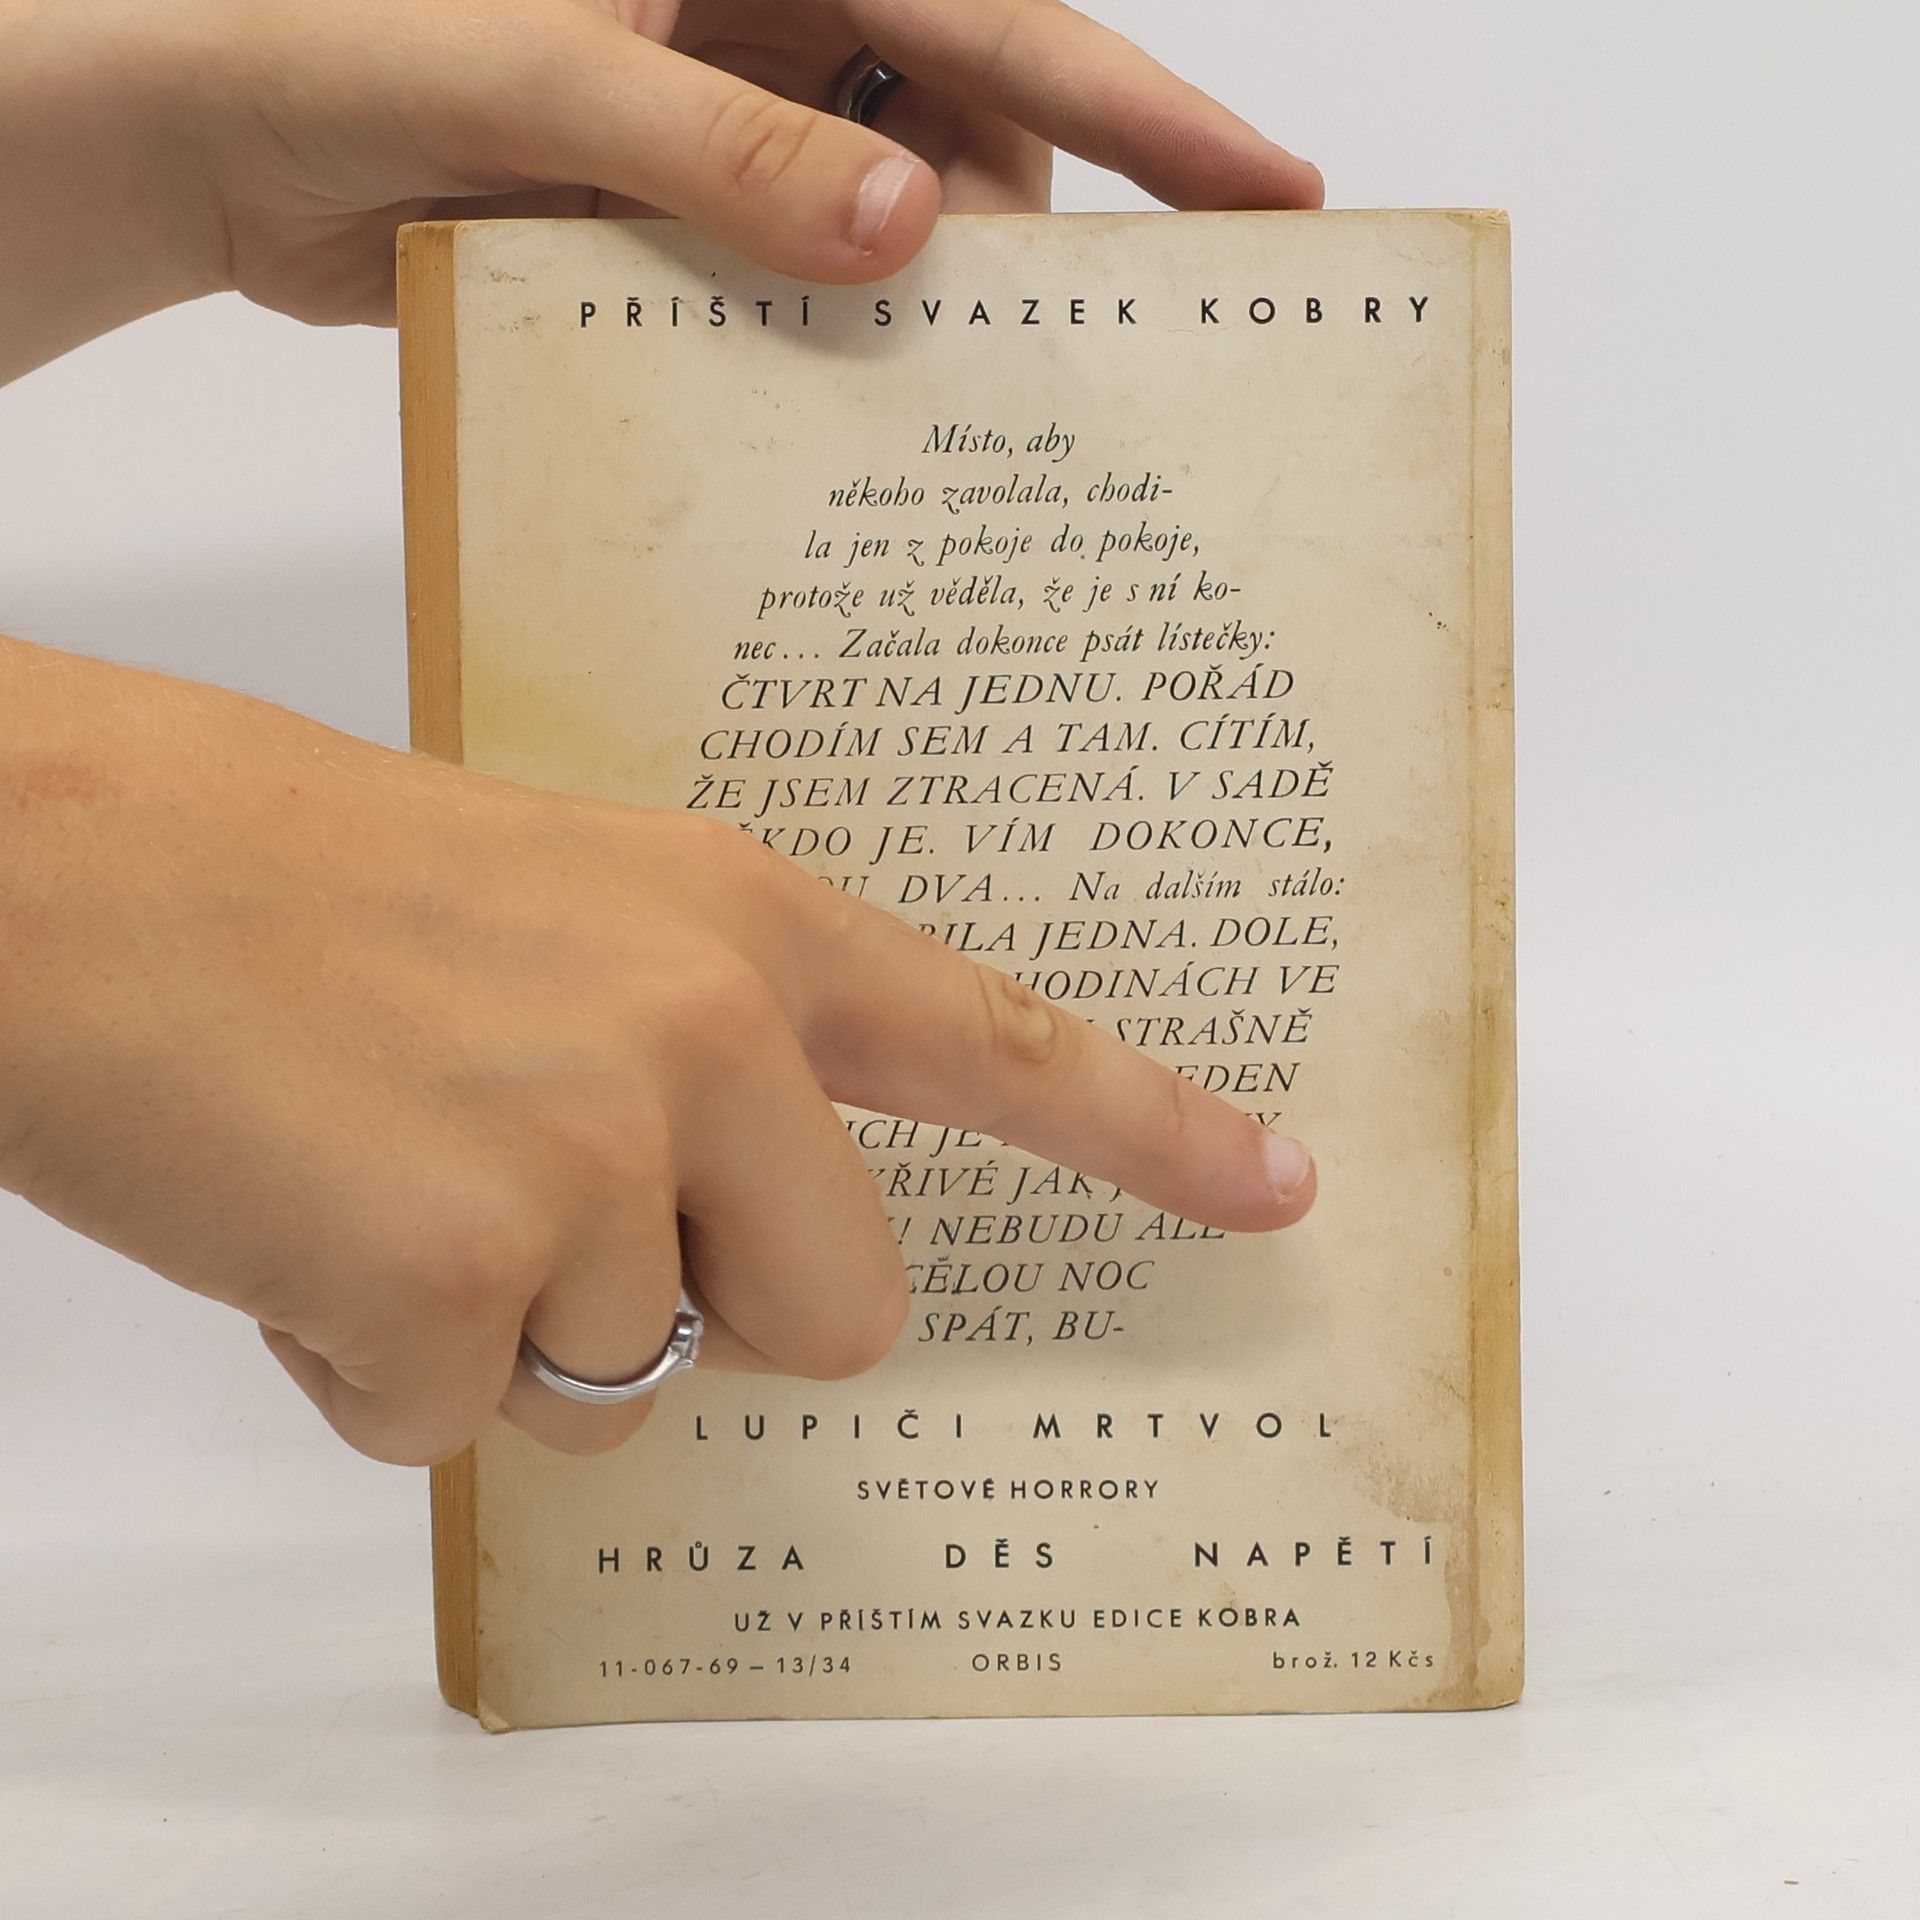 PŘÍŠTÍ SVAZEK KOBRY
Místo, aby
někoho zavolala, chodi-
la jen z pokoje do pokoje,
protože už věděla, že je s ní ko-
nec... Začala dokonce psát lístečky:
ČTVRT NA JEDNU. POŘÁD
CHODÍM SEM A TAM. CÍTÍM,
ŽE JSEM ZTRACENÁ. V SADĚ
JE. VÍM DOKONCE,
DVA... Na dalším stálo:
JEDNA. DOLE,
HODINÁCH VE
STRAŠNĚ
JE
JAK
! NEBUDU ALE
CELOU NOC
SPÁT, BU-
LUPIČI MRTVOL
SVĚTOVÉ HORRORY
HRŮZA DĚS NAPĚTÍ
UŽ V PŘÍŠTÍM SVAZKU EDICE KOBRA
11-067-69 – 13/34 ORBIS brož. 12 Kčs